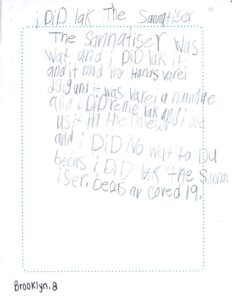 i DiD lak The Sannatiser
The Sannatiser was
wat. and i DiD lak it.
and it mad my Hands varei
and it was varei a
and i DiD relle lak and i
usit in the
and i DiD No wat to Du
becas i DiD lak the Sinn
iser. becas av coved 19.
Brooklyn, 8